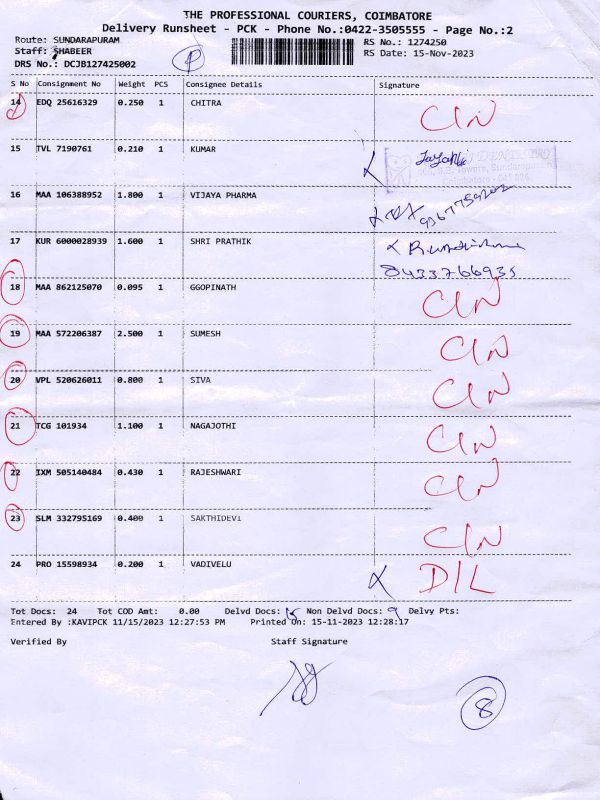 THE PROFESSIONAL COURIERS, COIMBATORE
Delivery Runsheet - PCK - Phone No.:0422-3505555 - Page No.:2
Route: SUNDARAPURAM RS No.: 1274250
Staff: SHABEER P RS Date: 15-Nov-2023
DRS No.: DCJB127425002
S No Consignment No Weight PCS Consignee Details Signature
14 EDQ 25616329 0.250 1 CHITRA CIN
15 TVL 7190761 0.210 1 KUMAR
16 MAA 106388952 1.800 1 VIJAYA PHARMA
17 KUR 6000028939 1.600 1 SHRI PRATHIK
8433766935
18 MAA 862125070 0.095 1 GGOPINATH CIN
19 MAA 572206387 2.500 1 SUMESH CIN
20 VPL 520626011 0.800 1 SIVA CIN
21 TCG 101934 1.100 1 NAGAJOTHI CIN
22 IXM 505140484 0.430 1 RAJESHWARI CIN
23 SLM 332795169 0.400 1 SAKTHIDEVI CIN
24 PRO 15598934 0.200 1 VADIVELU D/L
Tot Docs: 24 Tot COD Amt: 0.00 Delvd Docs: 15 Non Delvd Docs: 9 Delvy Pts:
Entered By :KAVIPCK 11/15/2023 12:27:53 PM Printed On: 15-11-2023 12:28:17
Verified By Staff Signature
8